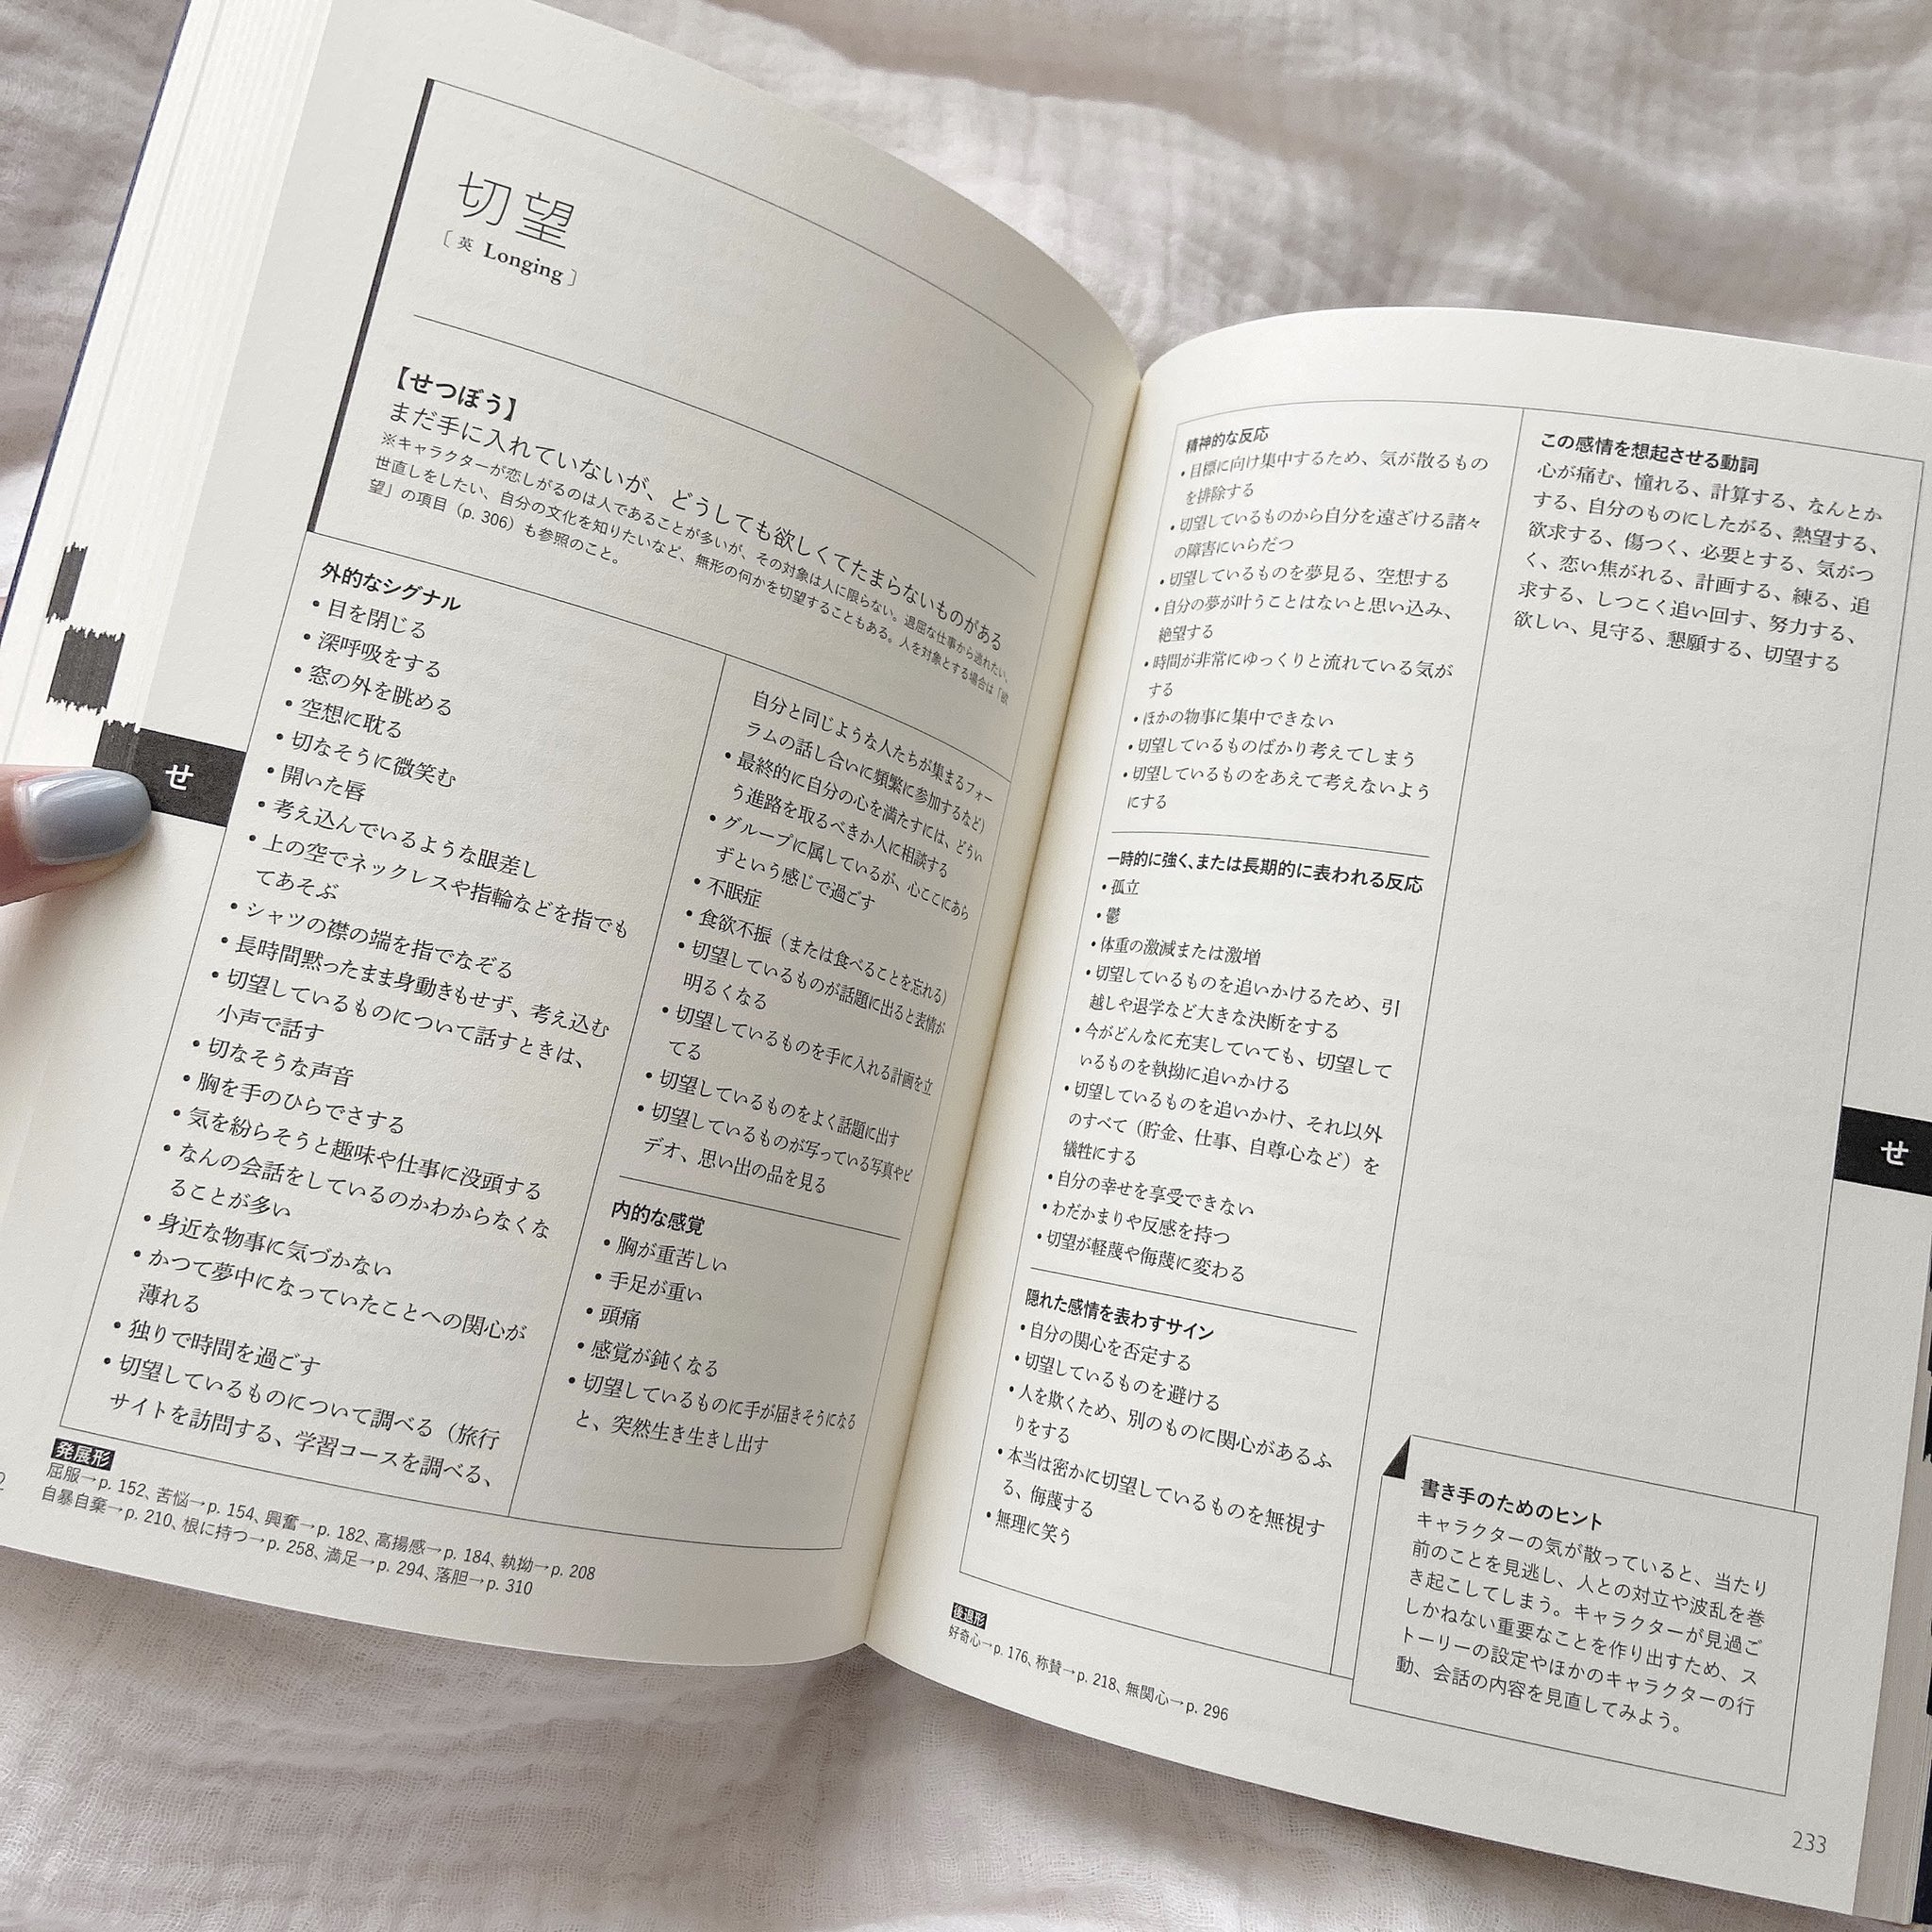 切望
［英 Longing］
【せつぼう】
まだ手に入れていないが、どうしても欲しくてたまらないものがある
※キャラクターが恋しがるのは人であることが多いが、その対象は人に限らない。退屈な仕事から逃れたい、
世直しをしたい、自分の文化を知りたいなど、無形の何かを切望することもある。人を対象とする場合は「欲
望」の項目（p. 306）も参照のこと。
外的なシグナル
• 目を閉じる
• 深呼吸をする
• 窓の外を眺める
• 空想に耽る
• 切なそうに微笑む
• 開いた唇
• 考え込んでいるような眼差し
• 上の空でネックレスや指輪などを指でも
てあそぶ
• シャツの襟の端を指でなぞる
• 長時間黙ったまま身動きもせず、考え込む
• 切望しているものについて話すときは、
小声で話す
• 切なそうな声音
• 胸を手のひらでさする
• 気を紛らそうと趣味や仕事に没頭する
• なんの会話をしているのかわからなくな
ることが多い
• 身近な物事に気づかない
• かつて夢中になっていたことへの関心が
薄れる
• 独りで時間を過ごす
• 切望しているものについて調べる（旅行
サイトを訪問する、学習コースを調べる、
自分と同じような人たちが集まるフォー
ラムの話し合いに頻繁に参加するなど）
• 最終的に自分の心を満たすには、どうい
う進路を取るべきか人に相談する
• グループに属しているが、心ここにあら
ずという感じで過ごす
• 不眠症
• 食欲不振（または食べることを忘れる）
• 切望しているものが話題に出ると表情が
明るくなる
• 切望しているものを手に入れる計画を立
てる
• 切望しているものをよく話題に出す
• 切望しているものが写っている写真やビ
デオ、思い出の品を見る
内的な感覚
• 胸が重苦しい
• 手足が重い
• 頭痛
• 感覚が鈍くなる
• 切望しているものに手が届きそうになる
と、突然生き生きし出す
発展形
屈服→p. 152、苦悩→p. 154、興奮→p. 182、高揚感→p. 184、執拗→p. 208
自暴自棄→p. 210、根に持つ→p. 258、満足→p. 294、落胆→p. 310
せ
精神的な反応
• 目標に向け集中するため、気が散るもの
を排除する
• 切望しているものから自分を遠ざける諸々
の障害にいらだつ
• 切望しているものを夢見る、空想する
• 自分の夢が叶うことはないと思い込み、
絶望する
• 時間が非常にゆっくりと流れている気が
する
• ほかの物事に集中できない
• 切望しているものばかり考えてしまう
• 切望しているものをあえて考えないよう
にする
一時的に強く、または長期的に表われる反応
• 孤立
• 鬱
• 体重の激減または激増
• 切望しているものを追いかけるため、引
越しや退学など大きな決断をする
• 今がどんなに充実していても、切望して
いるものを執拗に追いかける
• 切望しているものを追いかけ、それ以外
のすべて（貯金、仕事、自尊心など）を
犠牲にする
• 自分の幸せを享受できない
• わだかまりや反感を持つ
• 切望が軽蔑や侮蔑に変わる
隠れた感情を表わすサイン
• 自分の関心を否定する
• 切望しているものを避ける
• 人を欺くため、別のものに関心があるふ
りをする
• 本当は密かに切望しているものを無視す
る、侮蔑する
• 無理に笑う
後退形
好奇心→p. 176、称賛→p. 218、無関心→p. 296
この感情を想起させる動詞
心が痛む、憧れる、計算する、なんとか
する、自分のものにしたがる、熱望する、
欲求する、傷つく、必要とする、気がつ
く、恋い焦がれる、計画する、練る、追
求する、しつこく追い回す、努力する、
欲しい、見守る、懇願する、切望する
せ
書き手のためのヒント
キャラクターの気が散っていると、当たり
前のことを見逃し、人との対立や波乱を巻
き起こしてしまう。キャラクターが見過ご
しかねない重要なことを作り出すため、ス
トーリーの設定やほかのキャラクターの行
動、会話の内容を見直してみよう。
233